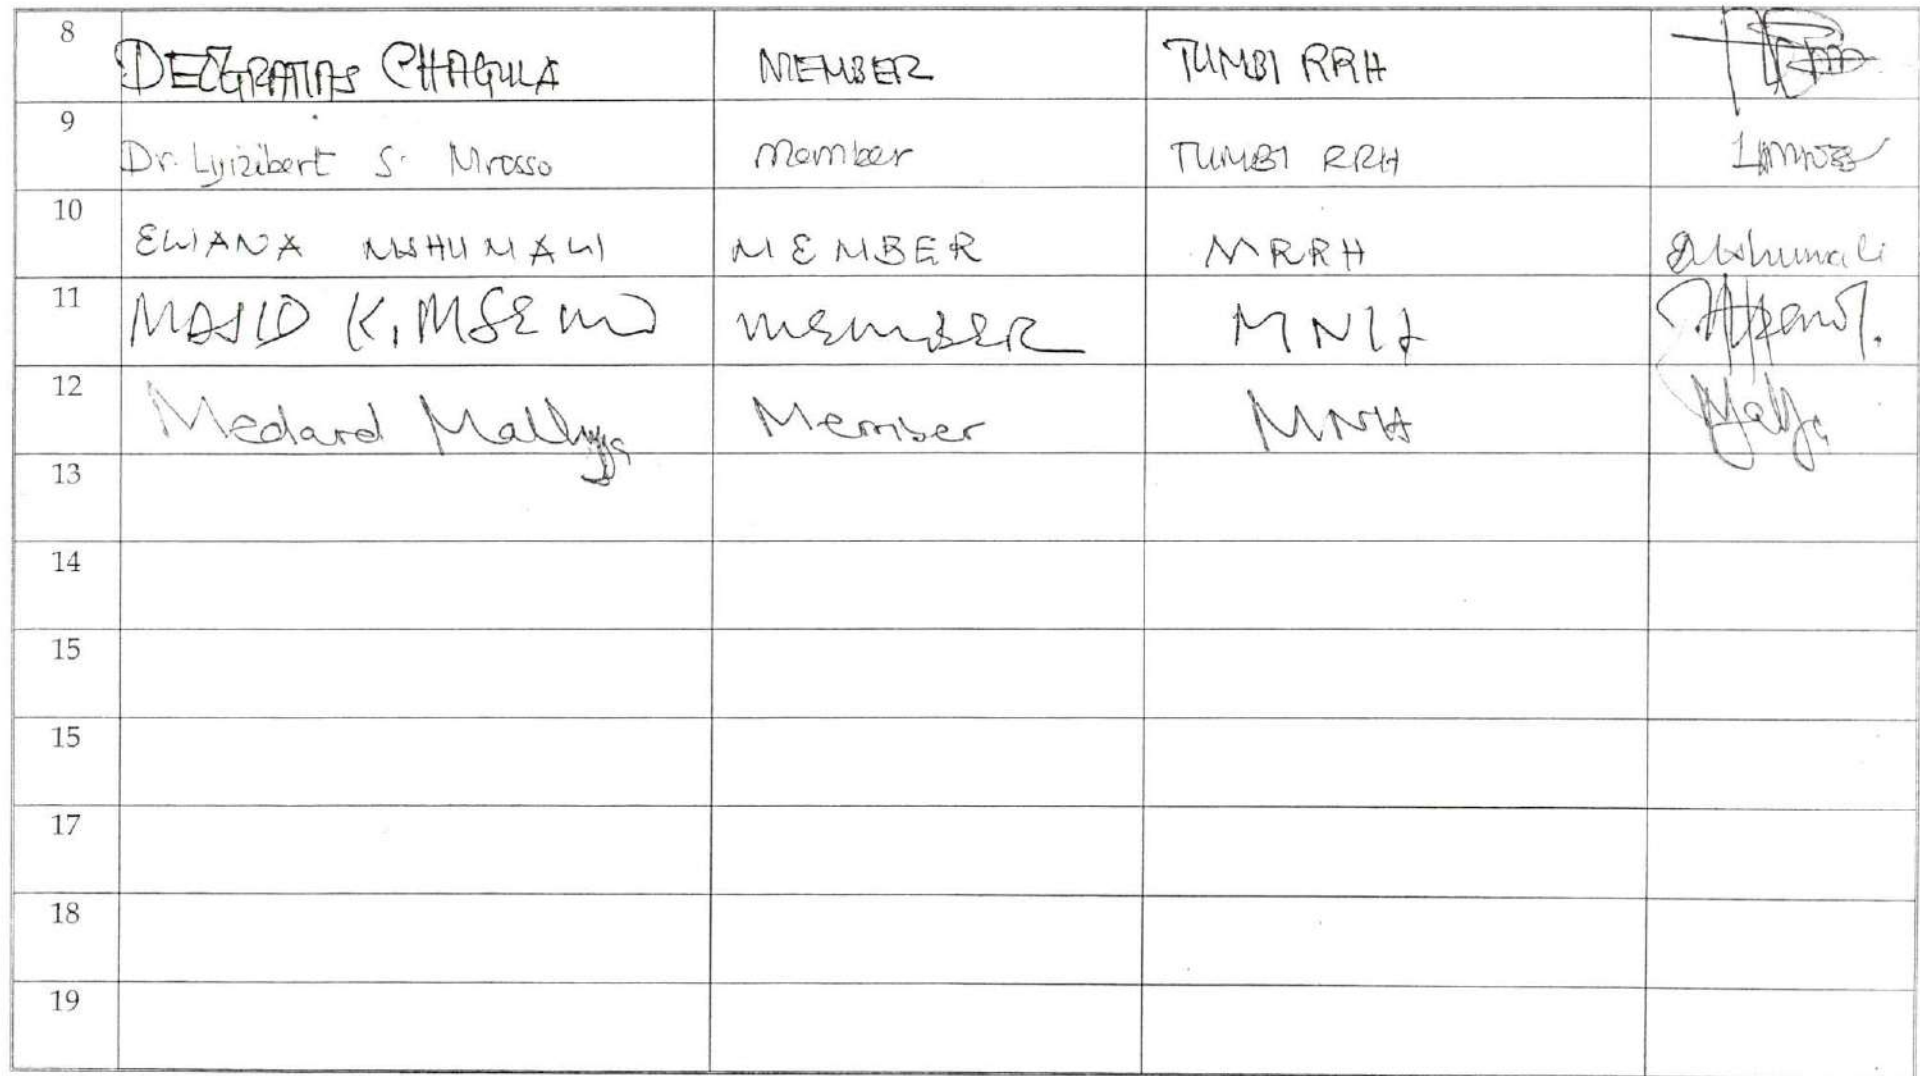 8 DEOGRATIAS CHAGULA MEMBER TUMBI RRH
9 Dr. Lyizibert S. Mrosso Member TUMBI RRH
10 ELIANA MSHUMALI MEMBER MRRH
11 MAJID K. MSEMO MEMBER MNH
12 Medard Mallya Member MNH
13
14
15
15
17
18
19